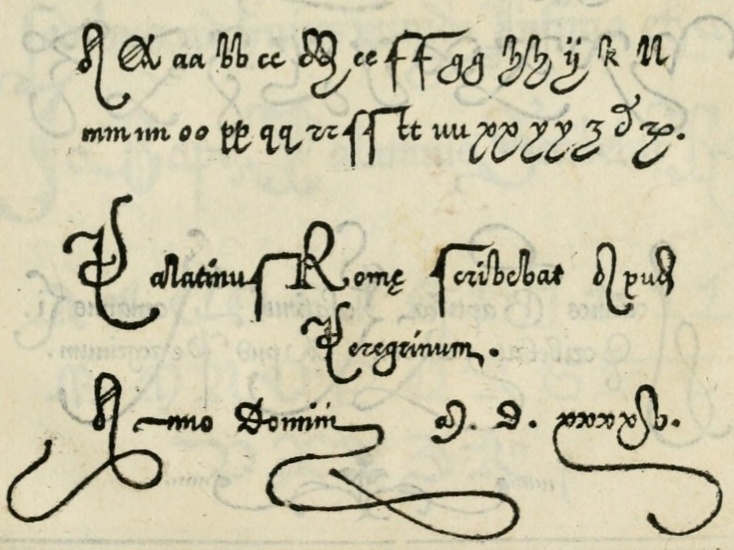 A A aa bb cc dd ee ff gg hh ij k ll
mm nn oo pp qq rr ſſ tt uu xx yy z & ꝝ.
Palatinuſ Romę ſcribebat Apud
Peregrinum.
Anno Domini M. D. xxxxv.